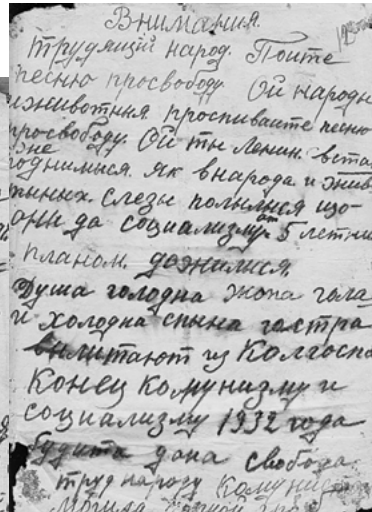 Внимания.
Трудящий народ. Поите
песню просвободу. Ой народы
и животныя проспиваите песню
просвободу. Ой ты Ленин. вста
не
годнимыся. як внарода и жив
тыных. слезы полылися що
они да социализму ат 5 летни
планом. дожилися.
Душа голодна жопа гола
и холодна спына гостра
вылитают из Колгоспа
Конец комунизму и
социализму 1932 года
будита дана свобода
труд народу комунис
Могила